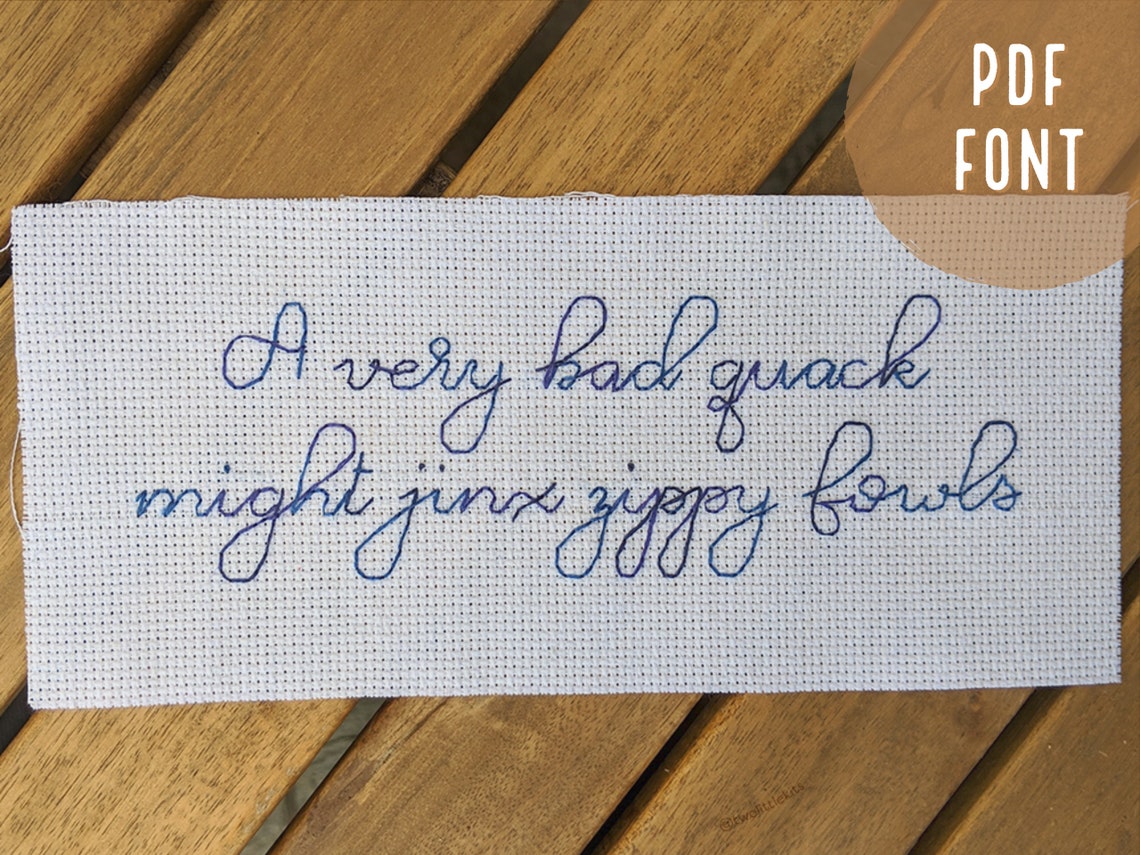 PDF
FONT
A very bad quack
might jinx zippy fowls
@twolittlekits